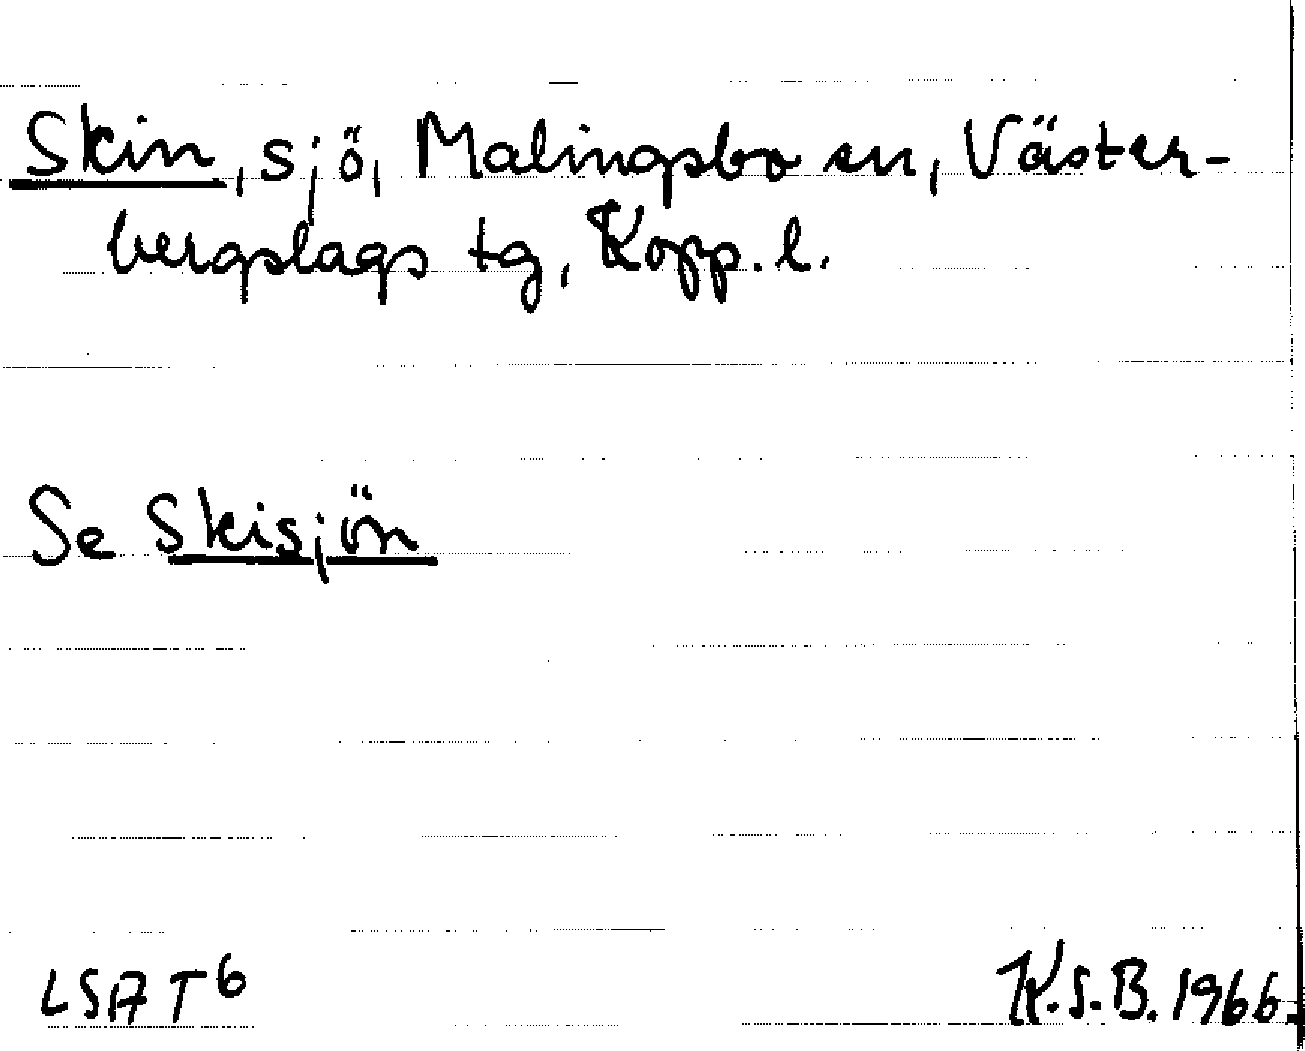 Skin, sjö, Malingsbo sn, Väster-
bergslags tg, Kopp. l.
Se Skisjön
LSA T6
K.S.B. 1966.